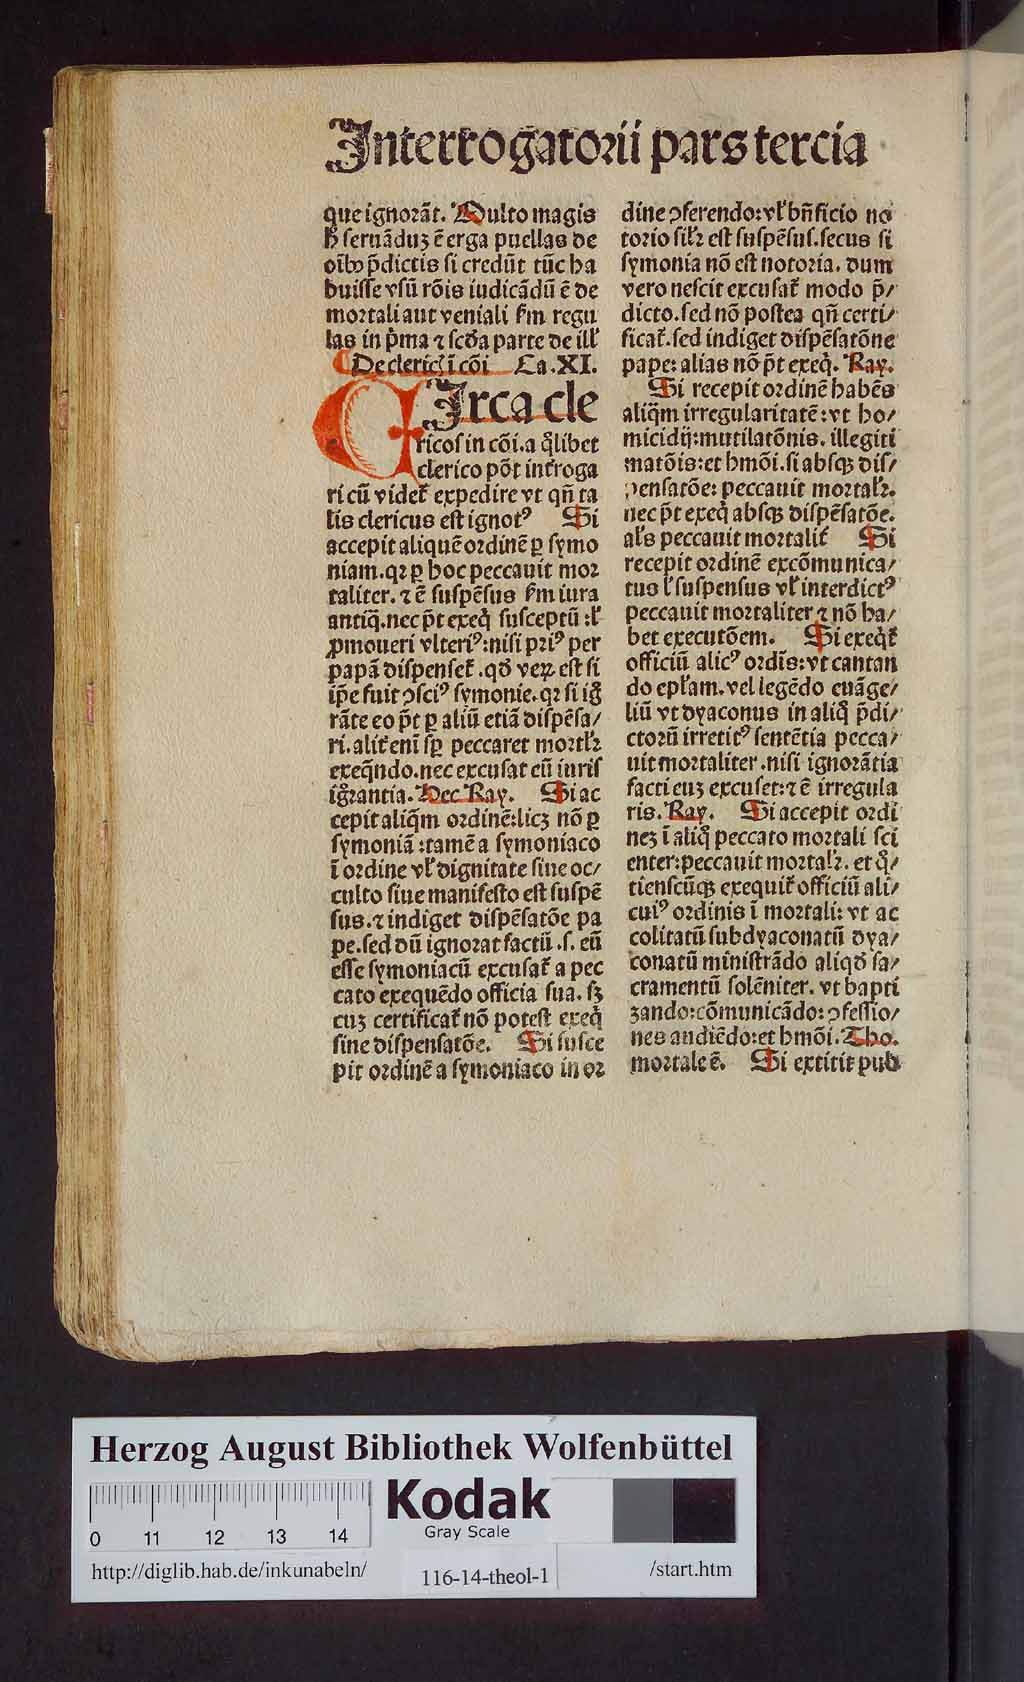 Interrogatorii pars tercia
que ignorãt. Multo magis
h̃ seruãduʒ ē erga puellas de
oĩbꝰ p̃dictis si credũt tũc ha
buisse vsũ rõis iudicãdũ ē de
mortali aut veniali ẜm regu
las in p̃ma ⁊ scďa parte de ill̃
De cleric̃ ĩ cõi Ca.XI.
CIrca cle
ricos in cõi. a q̃libet
clerico põt int̃roga
ri cũ videt̃ expedire vt qñ ta
lis clericus est ignotꝰ Si
accepit aliquẽ ordinẽ ꝑ symo
niam. qꝛ ꝑ hoc peccauit mor
taliter. ⁊ ē suspẽsus ẜm iura
antiq̃. nec p̃t exeq̃ susceptũ : ł
ꝓmoueri vlteriꝰ: nisi priꝰ per
papã dispenset̃. qď veꝝ est si
ip̃e fuit ↄsciꝰ symonie. qꝛ si ig̃
rãte eo p̃t ꝑ aliũ etiã dispẽsa/
ri. alit̃ enĩ sꝑ peccaret mortl̃r
exeq̃ndo. nec excusat eũ iuris
ig̃rantia. Hec Ray. Si ac
cepit aliq̃m ordinẽ: licʒ nõ ꝑ
symoniã : tamẽ a symoniaco
ĩ ordine vł dignitate siue oc/
culto siue manifesto est suspẽ
sus. ⁊ indiget dispẽsatõe pa
pe. sed dũ ignorat factũ .s. eũ
esse symoniacũ excusat̃ a pec
cato exequẽdo officia sua. sʒ
cuʒ certificat̃ nõ potest exeq̃
sine dispensatõe. Si susce
pit ordinẽ a symoniaco in or
dine ↄferendo: vł bñficio no
torio sil̃r est suspẽsus. secus si
symonia nõ est notoria. dum
vero nescit excusat̃ modo p̃/
dicto. sed nõ postea qñ certi/
ficat̃. sed indiget dispẽsatõne
pape: alias nõ p̃t exeq̃. Ray.
Si recepit ordinẽ habẽs
aliq̃m irregularitatẽ: vt ho/
micidij: mutilatõnis. illegiti
matõis: et hmõi. si absqꝫ dis/
pensatõe: peccauit mortal̃r.
nec p̃t exeq̃ absqꝫ dispẽsatõe.
al̃s peccauit mortalit̃ Si
recepit ordinẽ excõmunica/
tus ł suspensus vł interdictꝰ
peccauit mortaliter ⁊ nõ ha/
bet executõem. Si exeq̃t̃
officiũ alicꝰ ordĩs: vt cantan
do epl̃am. vel legẽdo euãge/
liũ vt dyaconus in aliq̃ p̃di/
ctorũ irretitꝰ sentẽtia pecca/
uit mortaliter. nisi ignorãtia
facti euʒ excuset: ⁊ ē irregula
ris. Ray. Si accepit ordi
neʒ ĩ aliq̃ peccato mortali sci
enter: peccauit mortal̃r. et q̃/
tienscũqꝫ exequit̃ officiũ ali/
cuiꝰ ordinis ĩ mortali: vt ac
colitatũ subdyaconatũ dya/
conatũ ministrãdo aliqď sa/
cramentũ solẽniter. vt bapti
zando: cõmunicãdo: ↄfessio/
nes audiẽdo: et hmõi. Tho.
mortale ē. Si extitit pub
Herzog August Bibliothek Wolfenbüttel
0 11 12 13 14
Kodak
Gray Scale
http://diglib.hab.de/inkunabeln/ 116-14-theol-1 /start.htm